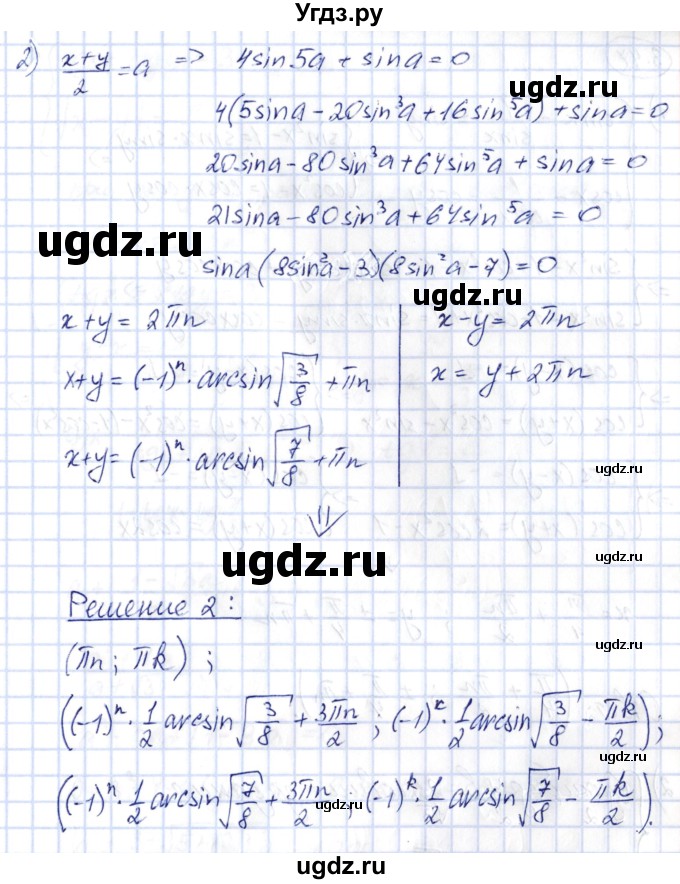 Угдз.ру
2) (x+y)/2 = a => 4sin5a + sina = 0
ugdz.ru
4(5sina - 20sin³a + 16sin⁵a) + sina = 0
20sina - 80sin³a + 64sin⁵a + sina = 0
21sina - 80sin³a + 64sin⁵a = 0
ugdz.ru
sina(8sin²a - 3)(8sin²a - 7) = 0
ugdz.ru
x+y = 2πn
x-y = 2πn
x+y = (-1)ⁿ · arcsin√(3/8) + πn
x = y + 2πn
x+y = (-1)ⁿ · arcsin√(7/8) + πn
ugdz.ru
⇓
ugdz.ru
Решение 2:
ugdz.ru
(πn; πk);
((-1)ⁿ · 1/2 arcsin√(3/8) + 3πn/2; (-1)ᵏ · 1/2 arcsin√(3/8) - πk/2);
ugdz.ru
((-1)ⁿ · 1/2 arcsin√(7/8) + 3πn/2; (-1)ᵏ · 1/2 arcsin√(7/8) - πk/2).
ugdz.ru
ugdz.ru
ugdz.ru